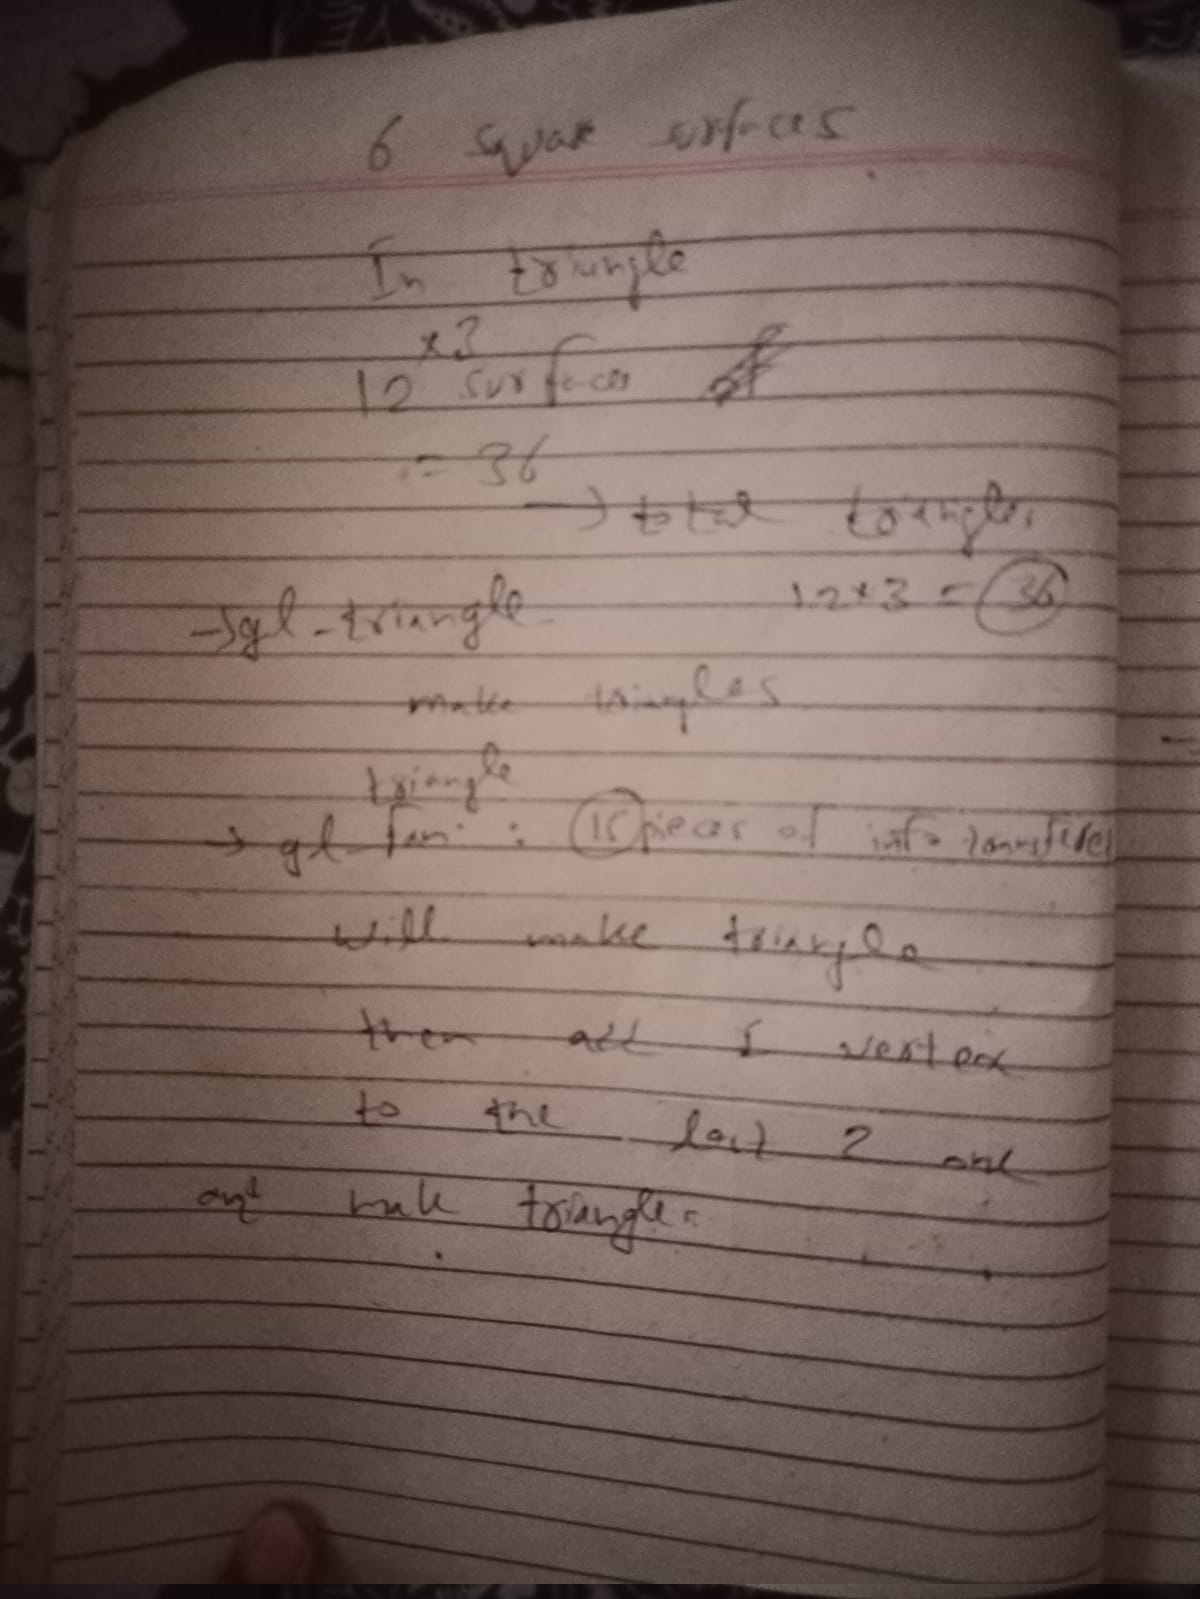 6 square surfaces
In triangle
x3
12 surfaces
= 36
→ total triangles
12*3 = 36
→ gl-triangle
make triangles
triangle
→ gl-fan : pieces of info
will make triangle
then add 1 vertex
to the last 2 one
and make triangle.